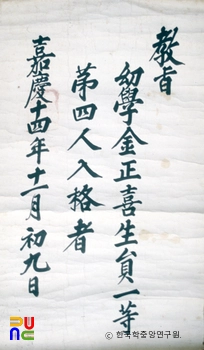 教旨
幼學金正喜生員一等
第四人入格者
嘉慶十四年十一月初九日
PUNC
© 한국학중앙연구원.